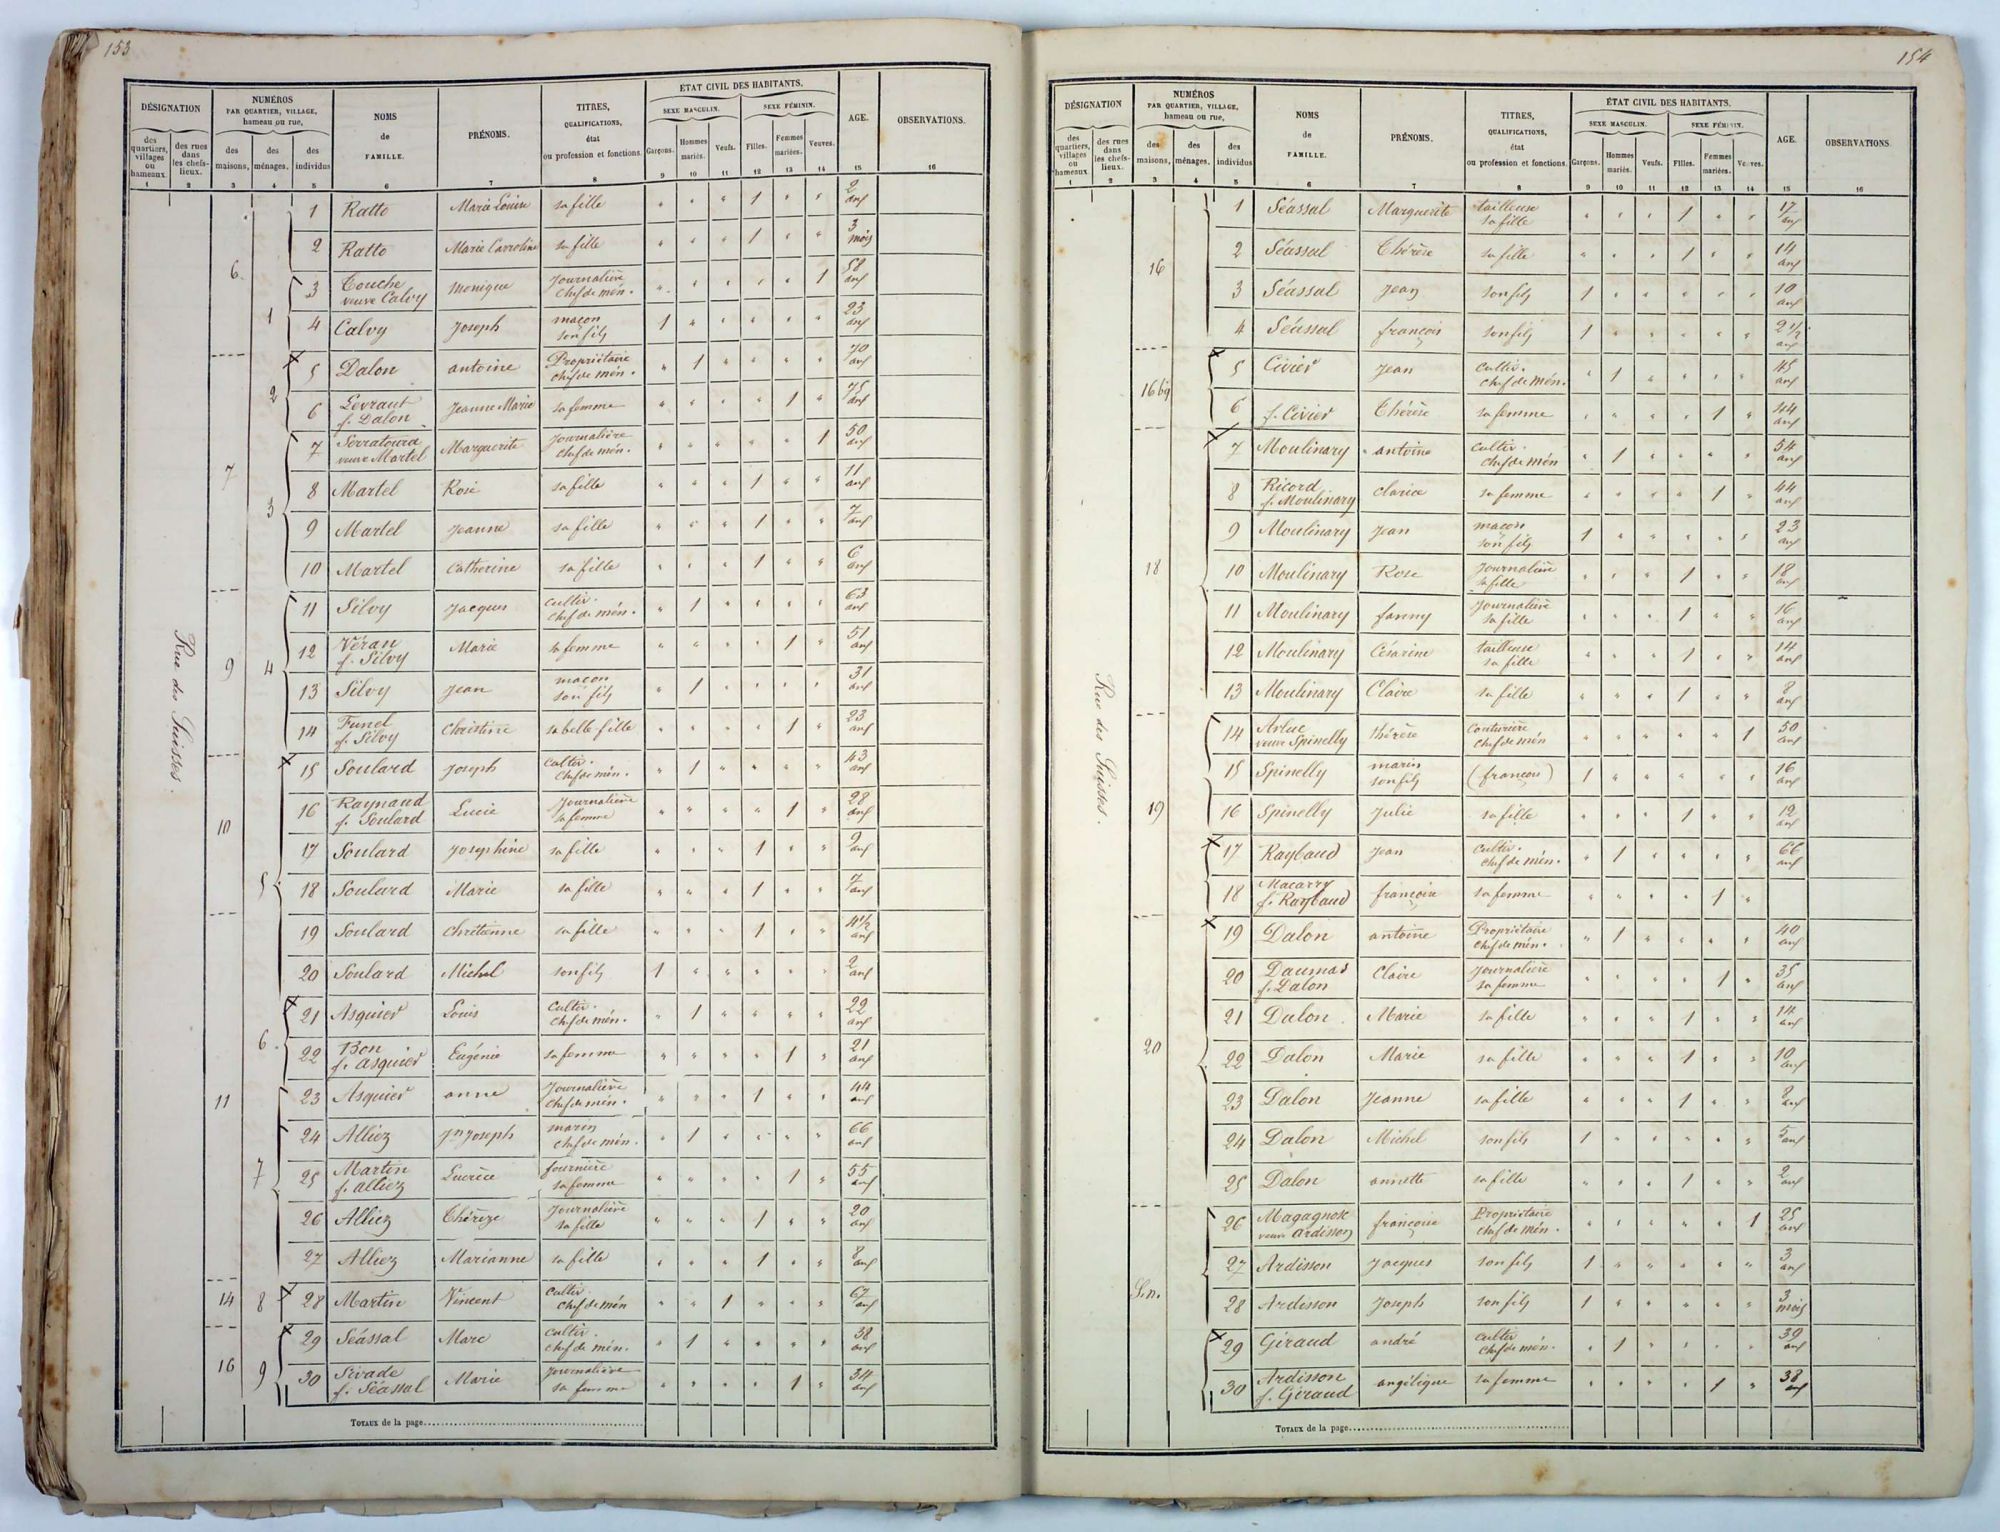 153
DÉSIGNATION
des quartiers, villages ou hameaux.
des rues dans les chefs-lieux.
NUMÉROS
PAR QUARTIER, VILLAGE,
hameau ou rue,
des maisons,
des ménages,
des individus
NOMS
de
FAMILLE.
PRÉNOMS.
TITRES,
QUALIFICATIONS,
état
ou profession et fonctions.
ÉTAT CIVIL DES HABITANTS.
SEXE MASCULIN.
SEXE FÉMININ.
Garçons.
Hommes mariés.
Veufs.
Filles.
Femmes mariées.
Veuves.
AGE.
OBSERVATIONS.
1 2 3 4 5 6 7 8 9 10 11 12 13 14 15 16
Rue des Suisses.
6
1 Ratto Marie Louise sa fille 1 2 ans
2 Ratto Marie Carroline sa fille 1 3 mois
1
3 Touche veuve Calvy Monique Journalière chef de mén. 1 58 ans
4 Calvy Joseph maçon son fils 1 23 ans
7
2
5 Dalon antoine Propriétaire chef de mén. 1 70 ans
6 Levraut f. Dalon Jeanne Marie sa femme 1 75 ans
3
7 Serratoura veuve Martel Marguerite Journalière chef de mén. 1 50 ans
8 Martel Rose sa fille 1 11 ans
9 Martel Jeanne sa fille 1 7 ans
10 Martel Catherine sa fille 1 6 ans
9
4
11 Silvy Jacques cultiv. chef de mén. 1 63 ans
12 Véran f. Silvy Marie sa femme 1 51 ans
13 Silvy Jean maçon son fils 1 31 ans
14 Funel f. Silvy Christine sa belle fille 1 23 ans
10
5
15 Soulard Joseph cultiv. chef de mén. 1 43 ans
16 Raynaud f. Soulard Lucie Journalière sa femme 1 28 ans
17 Soulard Josephine sa fille 1 9 ans
18 Soulard Marie sa fille 1 7 ans
11
19 Soulard Chrétienne sa fille 1 4 1/2 ans
20 Soulard Michel son fils 1 2 ans
6
21 Asquier Louis Cultiv. chef de mén. 1 22 ans
22 Bon f. Asquier Eugénie sa femme 1 21 ans
23 Asquier anne Journalière chef de mén. 1 44 ans
7
24 Alliez Jn Joseph marin chef de mén. 1 66 ans
25 Martin f. Alliez Lucrèce fournière sa femme 1 55 ans
26 Alliez Thérèze Journalière sa fille 1 20 ans
27 Alliez Marianne sa fille 1 8 ans
14
8
28 Martin Vincent Cultiv. chef de mén 1 67 ans
16
9
29 Séassal Marc Cultiv. chef de mén. 1 38 ans
30 Sivade f. Séassal Marie Journalière sa femme 1 34 ans
TOTAUX de la page
154
DÉSIGNATION
des quartiers, villages ou hameaux.
des rues dans les chefs-lieux.
NUMÉROS
PAR QUARTIER, VILLAGE,
hameau ou rue,
des maisons,
des ménages,
des individus
NOMS
de
FAMILLE.
PRÉNOMS.
TITRES,
QUALIFICATIONS,
état
ou profession et fonctions.
ÉTAT CIVIL DES HABITANTS.
SEXE MASCULIN.
SEXE FÉMININ.
Garçons.
Hommes mariés.
Veufs.
Filles.
Femmes mariées.
Veuves.
AGE.
OBSERVATIONS.
1 2 3 4 5 6 7 8 9 10 11 12 13 14 15 16
Rue des Suisses.
16
1 Séassal Marguerite tailleuse sa fille 1 17 ans
2 Séassal Thérèse sa fille 1 14 ans
3 Séassal Jean son fils 1 10 ans
4 Séassal françois son fils 1 2 1/2 ans
16 bis
5 Civier Jean cultiv. chef de mén. 1 45 ans
6 f. Civier Thérèse sa femme 1 44 ans
18
7 Moulinary antoine Cultiv. chef de mén 1 54 ans
8 Ricord f. Moulinary Clarice sa femme 1 44 ans
9 Moulinary Jean maçon son fils 1 23 ans
10 Moulinary Rose Journalière sa fille 1 18 ans
11 Moulinary fanny Journalière sa fille 1 16 ans
12 Moulinary Césarine tailleuse sa fille 1 14 ans
13 Moulinary Claire sa fille 1 8 ans
19
14 Arluc veuve Spinelly thérèse Couturière chef de mén 1 50 ans
15 Spinelly marin son fils (françois) 1 16 ans
16 Spinelly Julie sa fille 1 12 ans
17 Raybaud Jean Cultiv. chef de mén. 1 66 ans
18 Macarry f. Raybaud françoise sa femme 1
20
19 Dalon antoine Propriétaire chef de mén. 1 40 ans
20 Daumas f. Dalon Claire Journalière sa femme 1 35 ans
21 Dalon Marie sa fille 1 14 ans
22 Dalon Marie sa fille 1 10 ans
23 Dalon Jeanne sa fille 1 8 ans
24 Dalon Michel son fils 1 5 ans
25 Dalon annette sa fille 1 2 ans
S.n.
26 Magagnosc veuve Ardisson françoise Propriétaire chef de mén. 1 25 ans
27 Ardisson Jacques son fils 1 3 ans
28 Ardisson Joseph son fils 1 3 mois
29 Géraud andré cultiv chef de mén. 1 39 ans
30 Ardisson f. Géraud angélique sa femme 1 38 ans
TOTAUX de la page